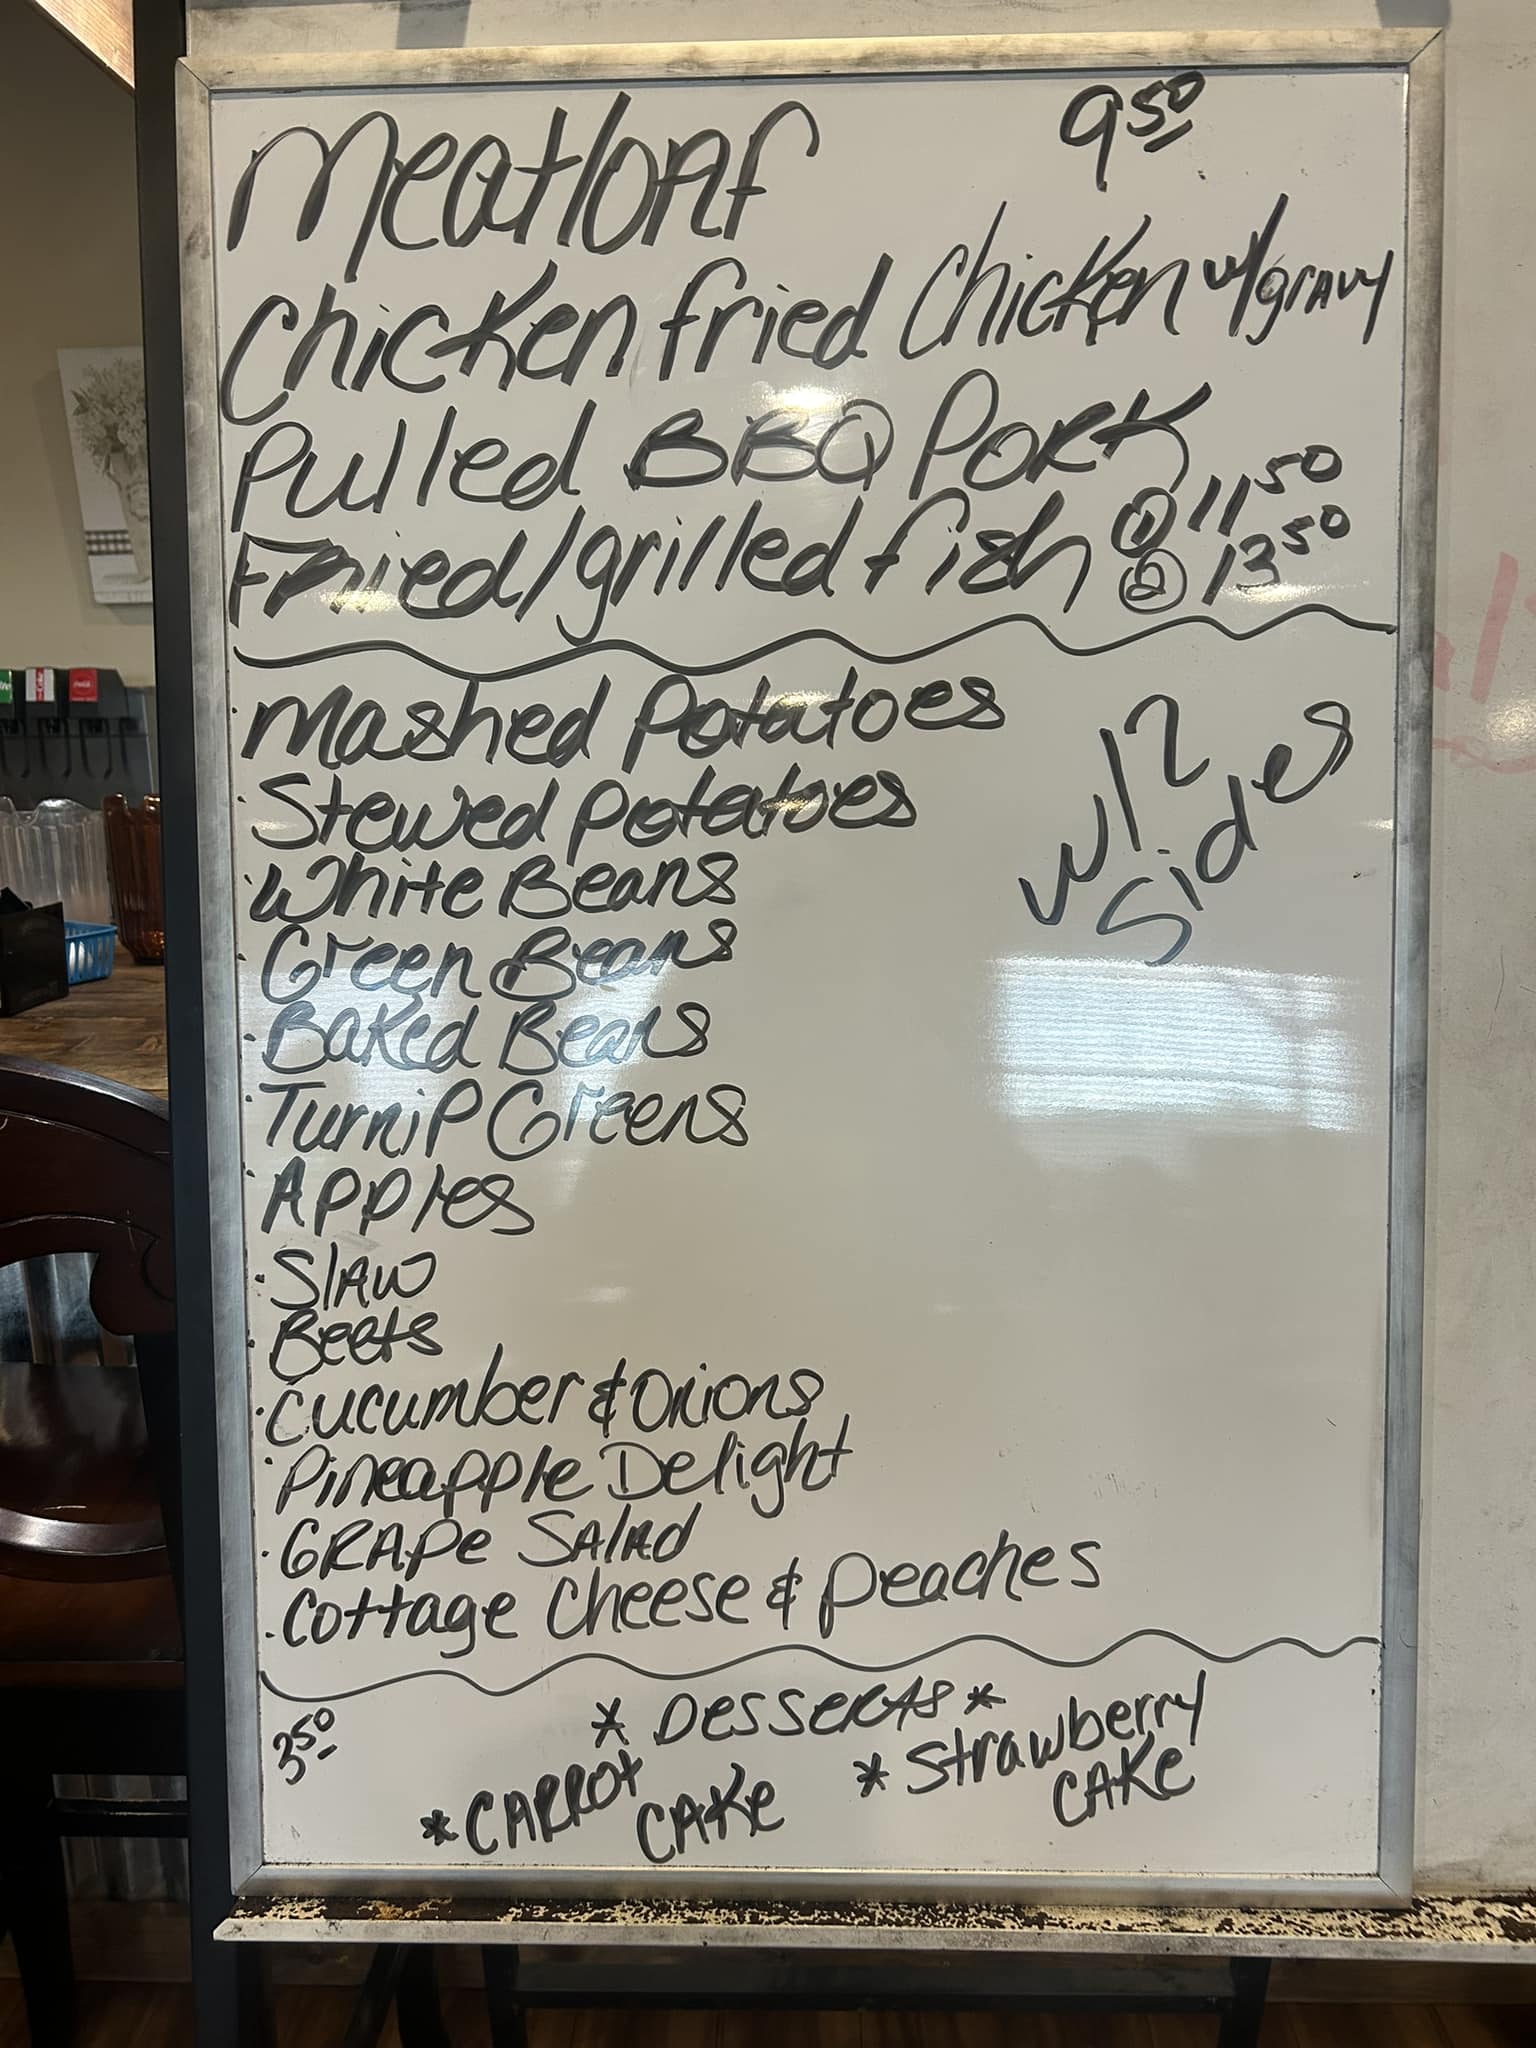 Meatloaf 9.50
Chicken fried Chicken w/gravy
Pulled BBQ Pork
Fried/grilled fish ① 11.50
② 13.50
Mashed Potatoes
w/2 Sides
Stewed Potatoes
White Beans
Green Beans
Baked Beans
Turnip Greens
Apples
Slaw
Beets
Cucumber & Onions
Pineapple Delight
Grape Salad
Cottage Cheese & Peaches
3.50
* Desserts *
* Carrot Cake
* Strawberry Cake